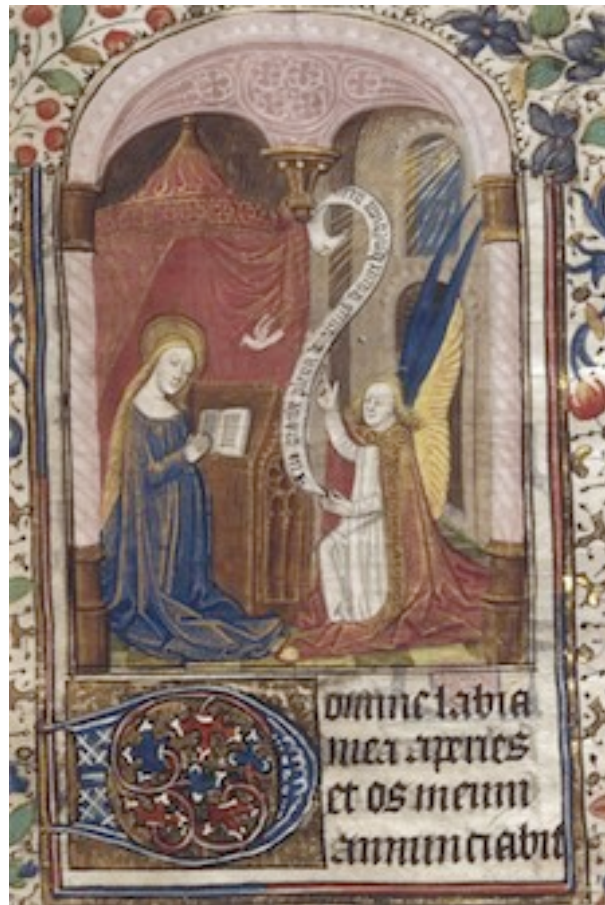 plena dominus tecum
Domine labia
mea aperies
et os meum
annunciabit